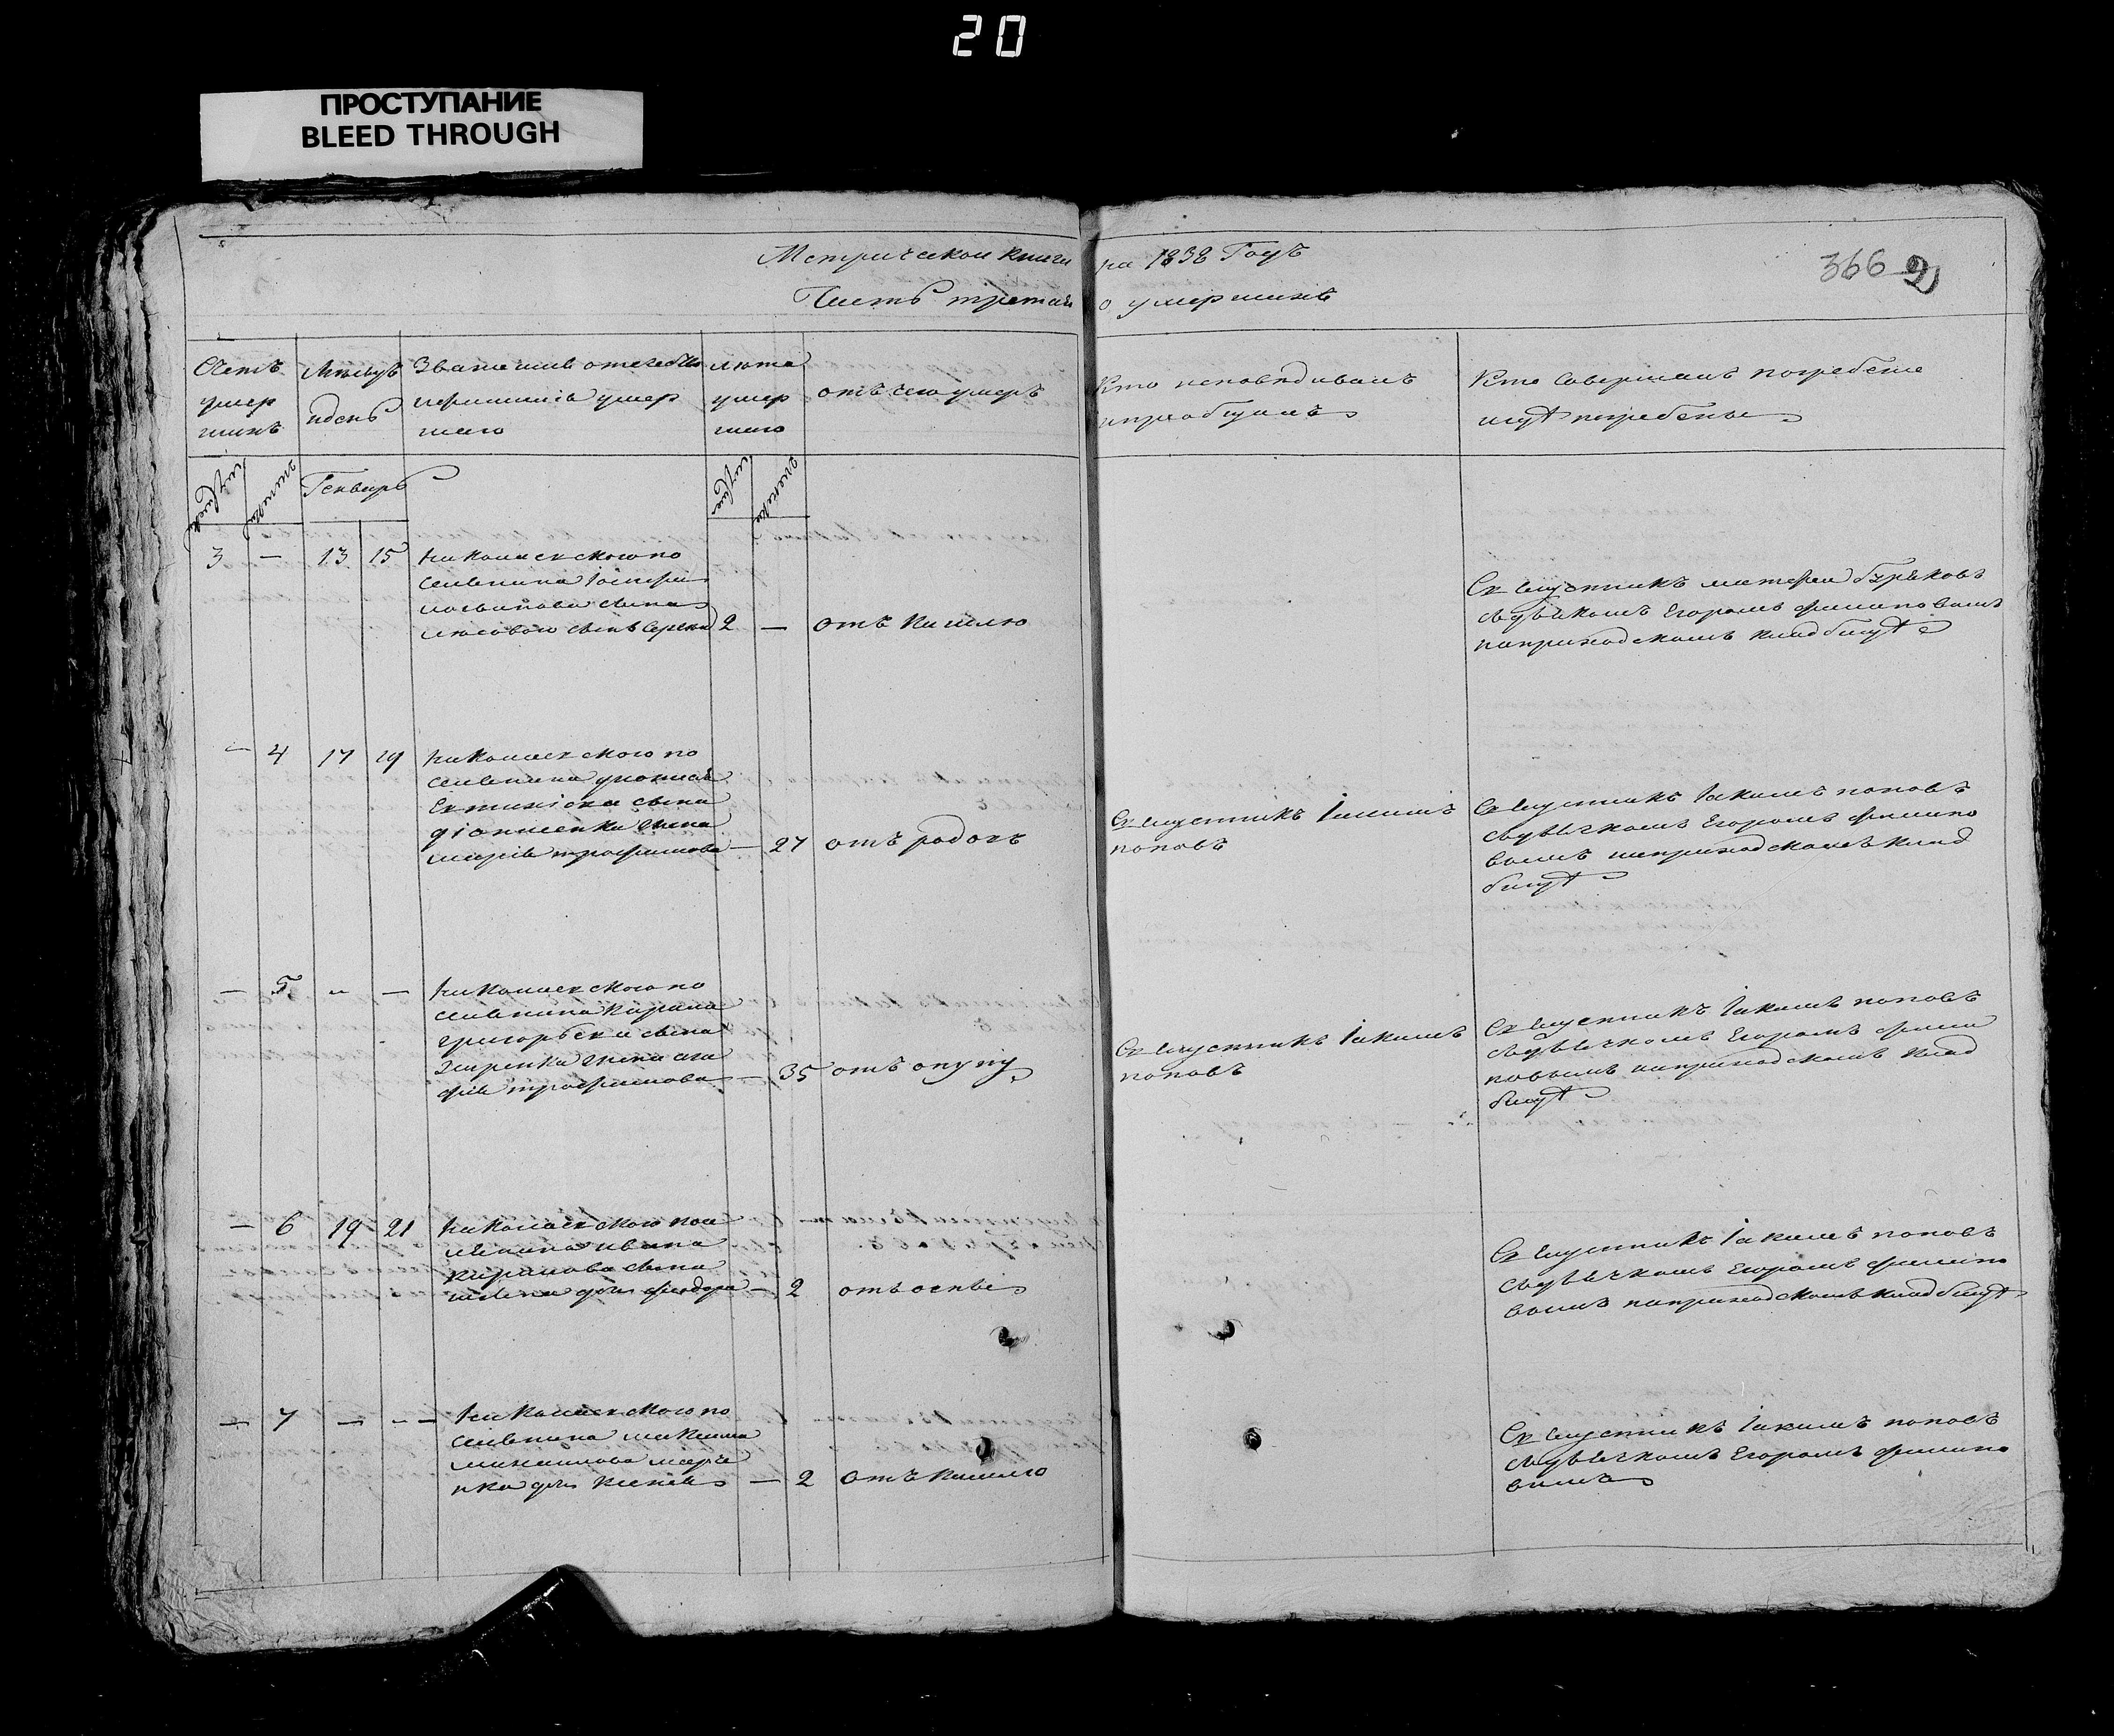 20
ПРОСТУПАНИЕ
BLEED THROUGH
Метрической книги на 1838 Годъ
366 2
Часть третая о умершихъ
Счетъ
умер
шихъ
Мѣсецъ
и день
Званіе имя отечество
и фамилія умер
шаго
лѣта
умер
шаго
отъ чего умеръ
Кто исповѣдивалъ
и приобщалъ
Кто Совершалъ погребение
и гдѣ погребены
мужеска
женска
Генварь
мужес
женска
3 — 13 15
Николаевского по
селянина
сына
сынъ Сергѣй
2 — отъ кашлю
Священникъ Бураковъ
з дьячкомъ Егоромъ филиповымъ
на приходскомъ кладбищѣ
— 4 17 19
Николаевского по
селянина
сына
жена
марія трофимова
— 27 отъ родовъ
Священникъ Іакимъ
поповъ
Священникъ Іакимъ поповъ
з дьячкомъ Егоромъ филипо
вымъ на приходскомъ клад
бищѣ
— 5 — —
Николаевского по
селянина Карпа
сына
жена ага
фія трофимова
— 35 отъ опуху
Священникъ Іакимъ
поповъ
Священникъ Іакимъ поповъ
з дьячкомъ Егоромъ фили
повымъ на приходскомъ клад
бищѣ
— 6 19 21
Николаевского посе
лянина ивана
сына
дочь феодора
— 2 отъ оспы
Священникъ Іакимъ поповъ
з дьячкомъ Егоромъ филипо
вымъ на приходскомъ кладбищѣ
— 7 — —
Николаевского по
селянина максима
михаилова марче
нка дочь ксенія
— 2 отъ кашлю
Священникъ Іакимъ поповъ
з дьячкомъ Егоромъ филипо
вымъ